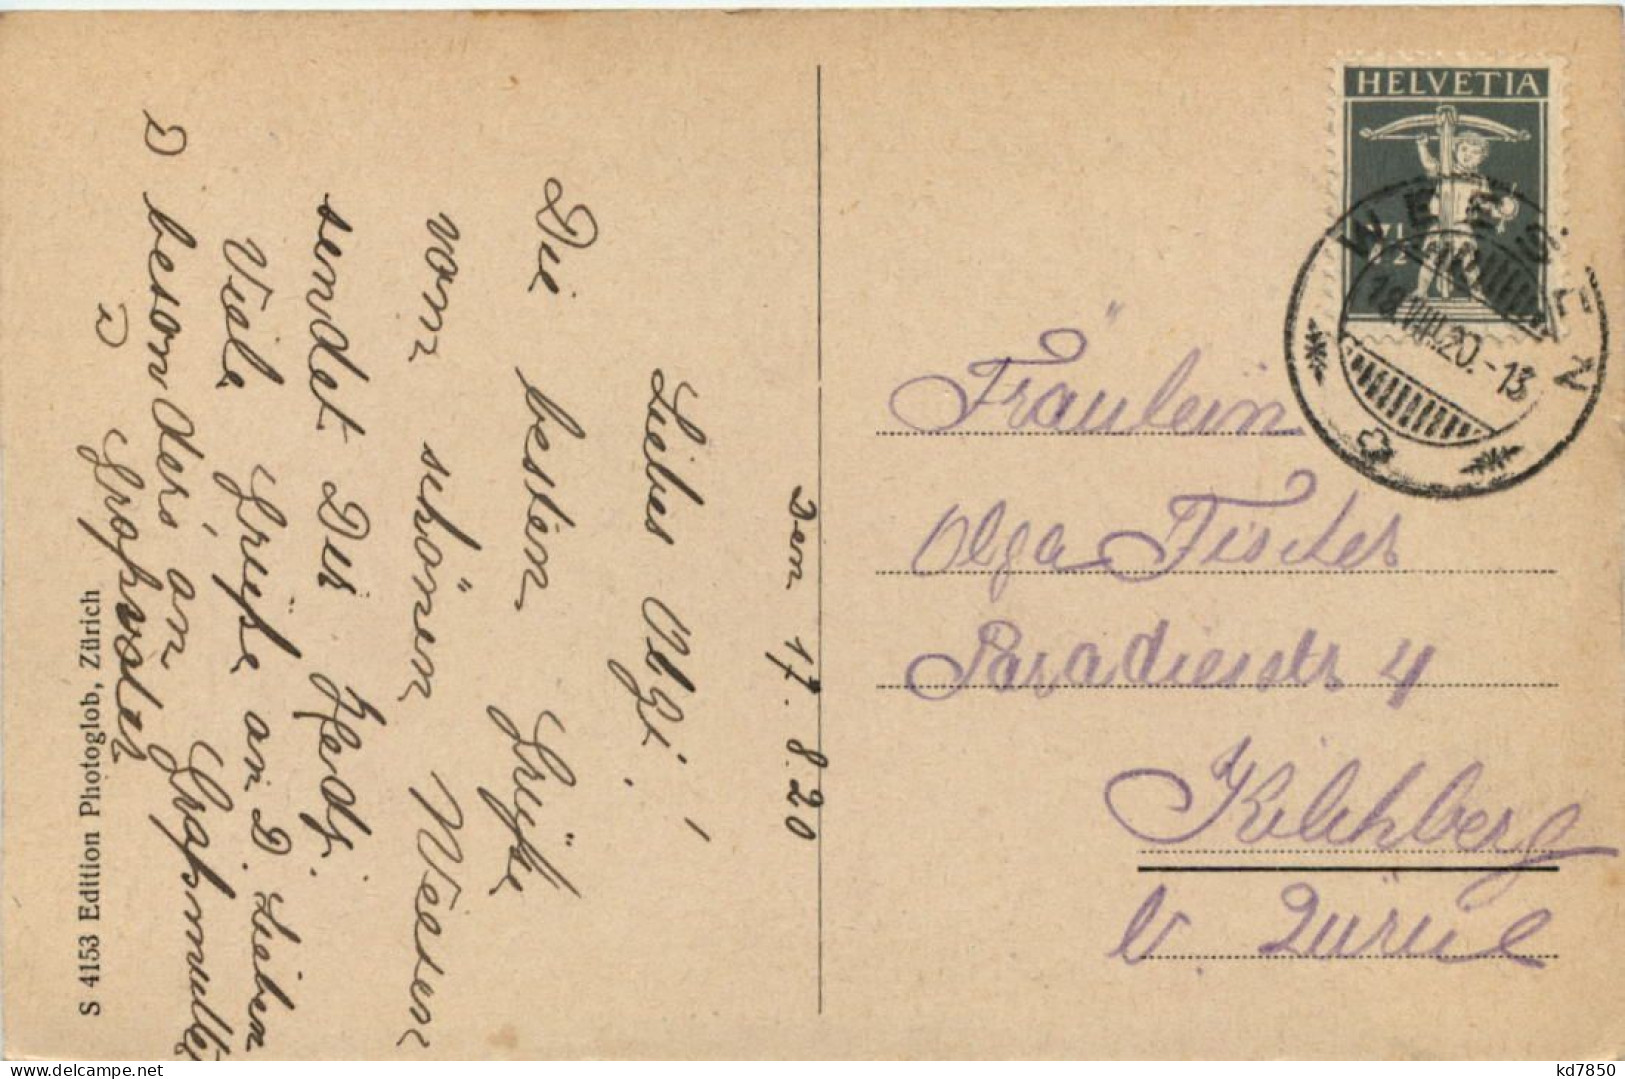 Den 17. 8. 20
Liebes Olgi!
Die besten Grüsse
vom schönen Weesen
sendet Dir Hedi.
Viele Grüsse an D. Lieben
besonders an Grosmutter
Grosvater
S 4153 Edition Photoglob, Zürich
HELVETIA
7 1/2
WEESEN
18.VIII.20.-13
Fräulein
Olga Fischer
Paradiesstr 4
Kilchberg
b. Zürich
kd7850